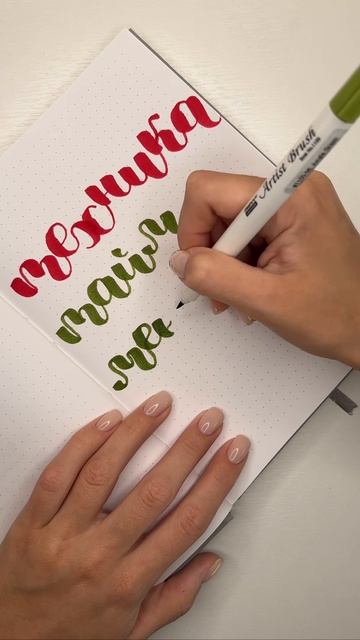 техника
тайм
мен
Artist Brush